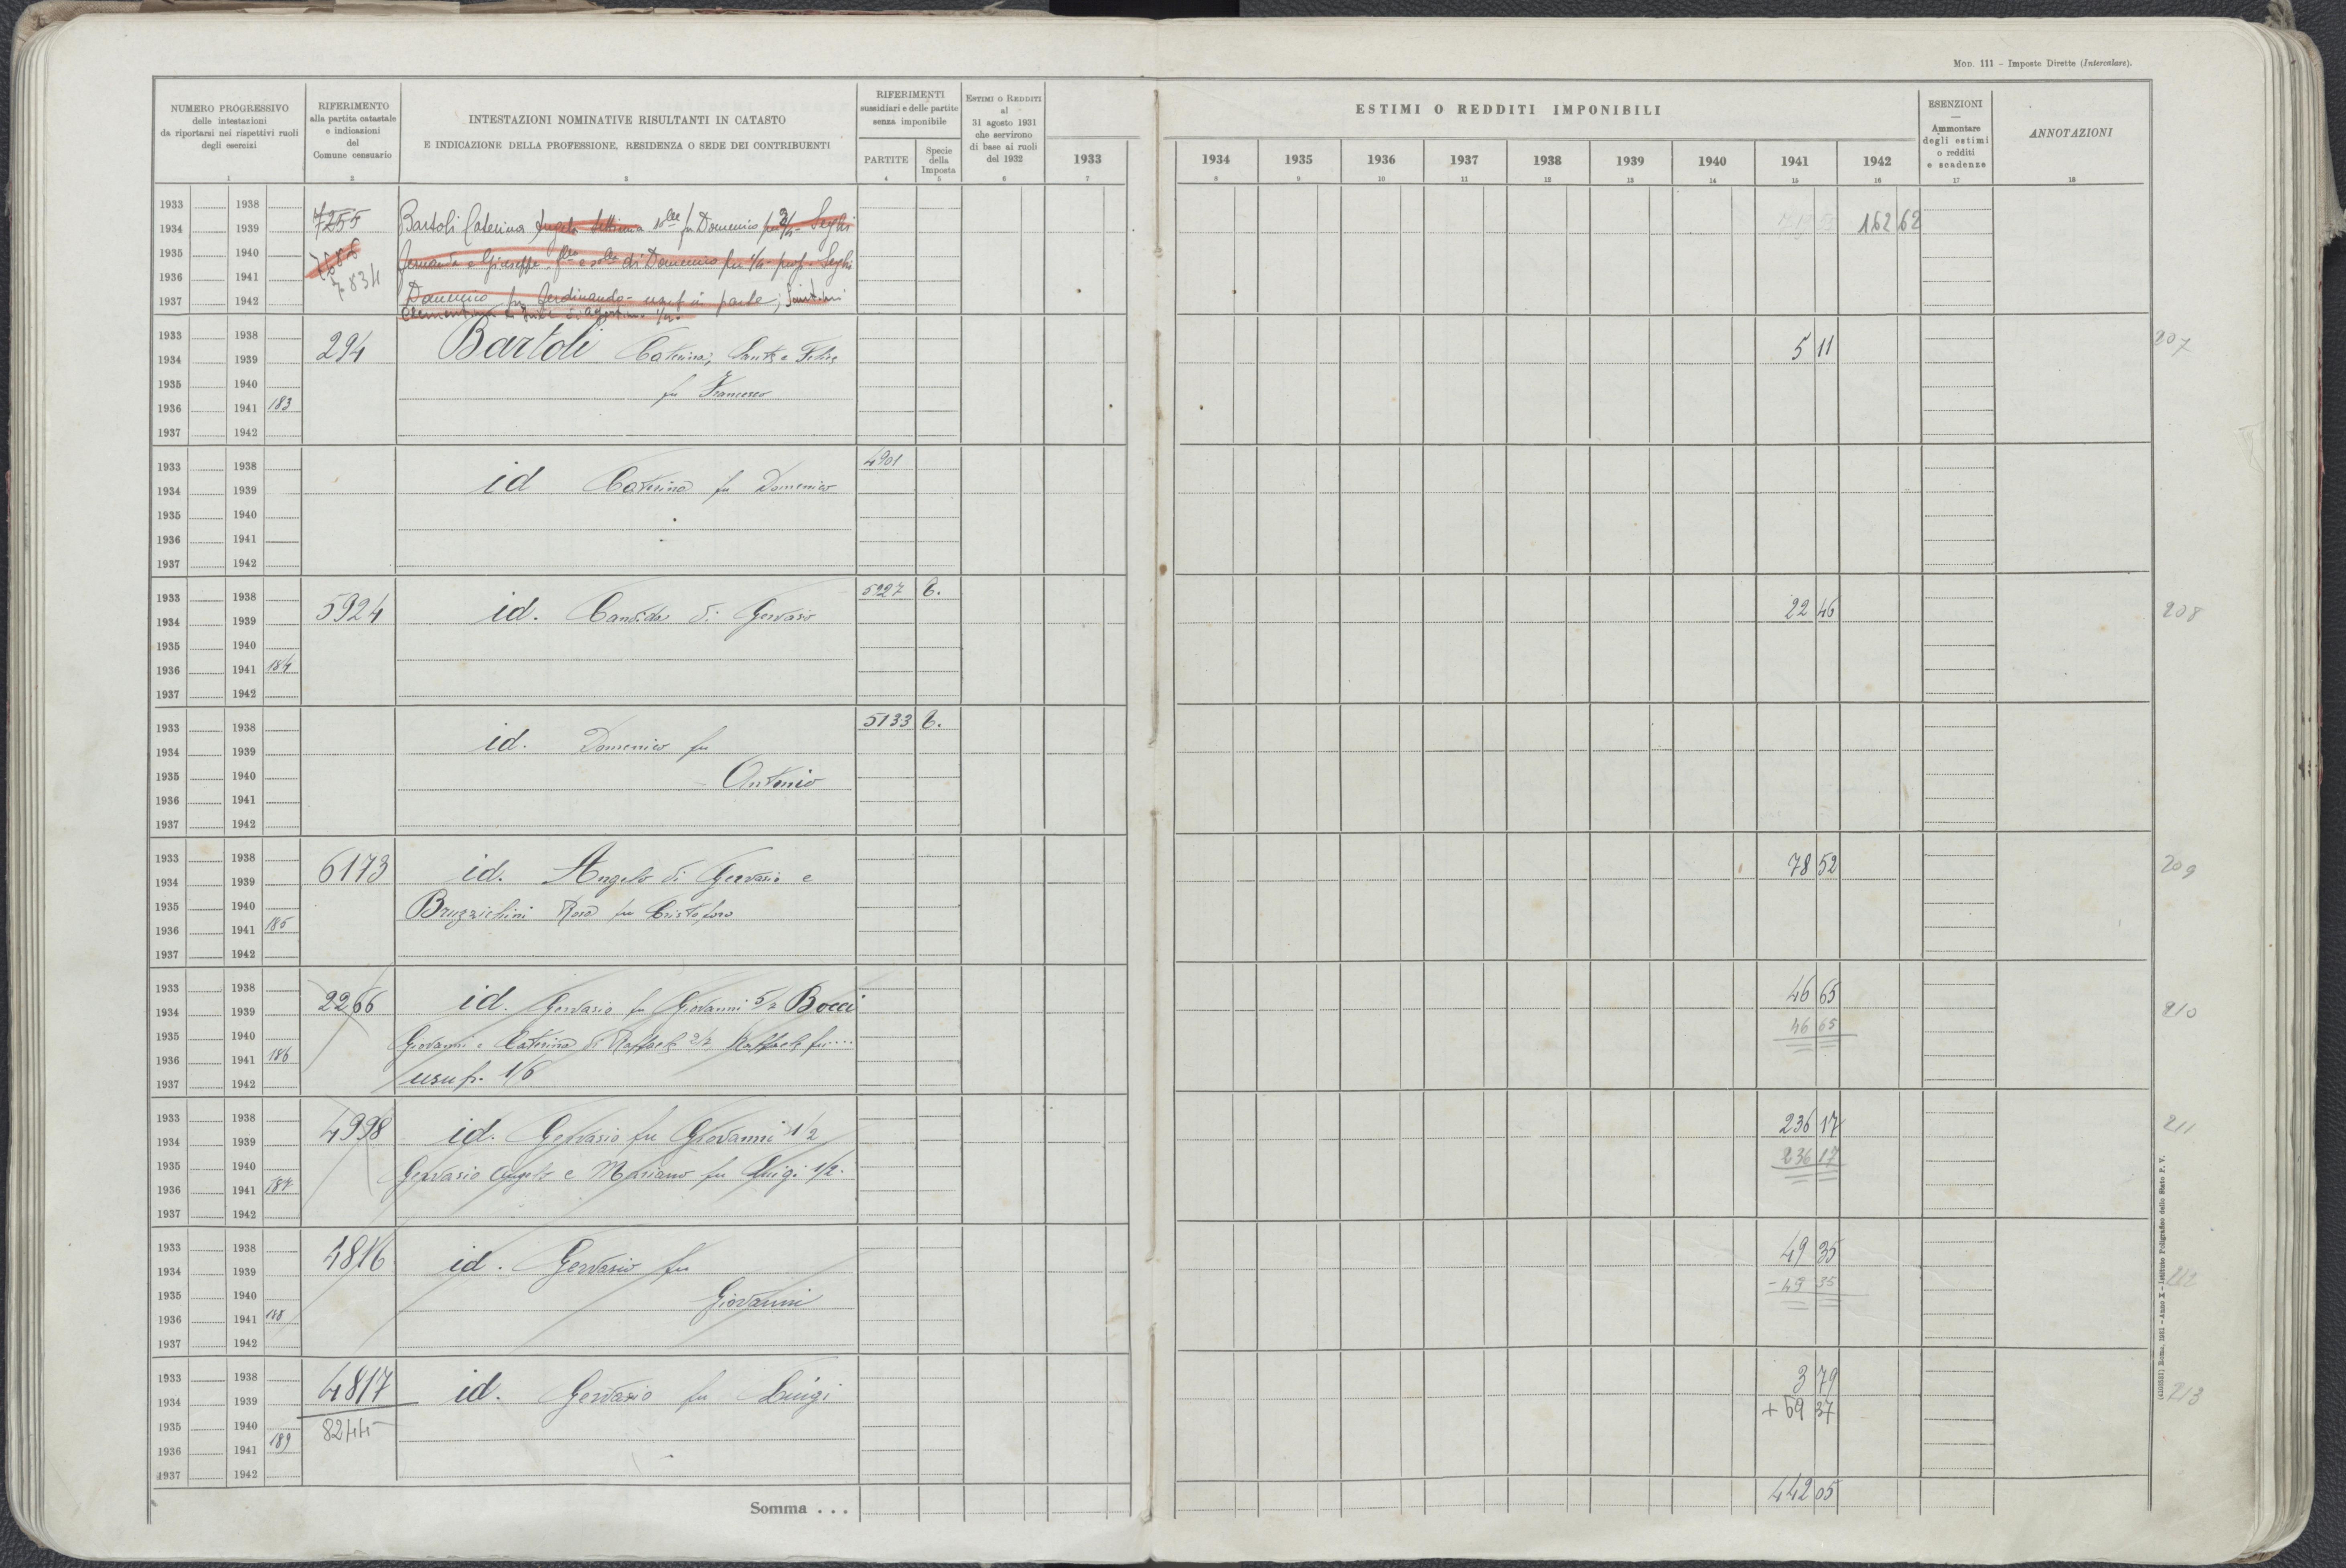 MOD. 111 – Imposte Dirette (Intercalare).
NUMERO PROGRESSIVO
delle intestazioni
da riportarsi nei rispettivi ruoli
degli esercizi
1
RIFERIMENTO
alla partita catastale
e indicazioni
del
Comune censuario
2
INTESTAZIONI NOMINATIVE RISULTANTI IN CATASTO
E INDICAZIONE DELLA PROFESSIONE, RESIDENZA O SEDE DEI CONTRIBUENTI
3
RIFERIMENTI
sussidiari e delle partite
senza imponibile
PARTITE
4
Specie
della
Imposta
5
ESTIMI O REDDITI
al
31 agosto 1931
che servirono
di base ai ruoli
del 1932
6
1933
7
ESTIMI O REDDITI IMPONIBILI
1934 1935 1936 1937 1938 1939 1940 1941 1942
8 9 10 11 12 13 14 15 16
ESENZIONI
—
Ammontare
degli estimi
o redditi
e scadenze
17
ANNOTAZIONI
18
1933 1938
1934 1939 7255 Bartoli Caterina Angela Settimia fu Domenico Seghi 162 62
1935 1940 Fernanda e Giuseppe di Domenico per 1/4 prop. Seghi
1936 1941 7834
1937 1942 Domenico fu Ferdinando usuf in parte;
1933 1938
1934 1939 294 Bartoli Caterina, Sante e Felice 5 11 207
1935 1940 fu Francesco
1936 1941 183
1937 1942
1933 1938 4901
1934 1939 id Caterina fu Domenico
1935 1940
1936 1941
1937 1942
1933 1938 5227 T.
1934 1939 5924 id. Candida di Gervasio 22 46 208
1935 1940
1936 1941 184
1937 1942
1933 1938 5133 T.
1934 1939 id. Domenico fu
1935 1940 Antonio
1936 1941
1937 1942
1933 1938
1934 1939 6173 id. Angelo di Gervasio e 78 52 209
1935 1940 Bruzzichini Rosa fu Cristoforo
1936 1941 185
1937 1942
1933 1938
1934 1939 2266 id. Gervasio fu Giovanni Bocci 46 65 210
1935 1940 Giovanni e Caterina di Raffaele Raffaele fu.... 46 65
1936 1941 186
1937 1942 usufr. 1/6
1933 1938
1934 1939 4998 id. Gervasio fu Giovanni 1/2 236 17 211
1935 1940 Gervasio Angelo e Mariano fu Luigi 1/2. 236 17
1936 1941 187
1937 1942
1933 1938
1934 1939 4816 id. Gervasio fu 49 35
1935 1940 Giovanni - 49 35 212
1936 1941 188
1937 1942
1933 1938
1934 1939 4817 id. Gervasio fu Luigi 3 79 213
1935 1940 8244 + 69 37
1936 1941 189
1937 1942
Somma . . . 442 05
(4103531) Roma, 1931 – Anno X – Istituto Poligrafico dello Stato P. V.